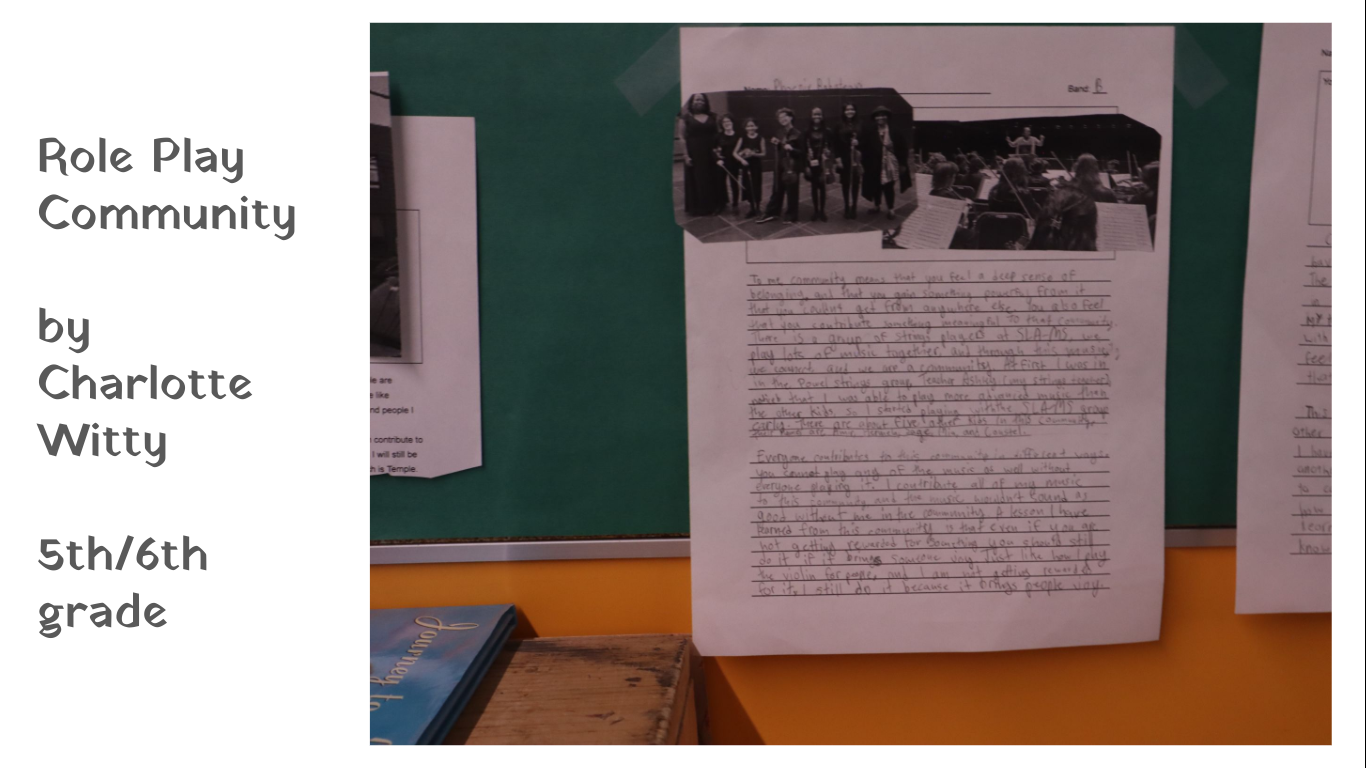 Role Play
Community
by
Charlotte
Witty
5th/6th
grade
Name
Band: B
To me community means that you feel a deep sense of
belonging, and that you gain something from it
that you couldnt get from anywhere else. You also feel
that you contribute something meaningful to that community.
There is a group of strings players at SLA-MS, we
play lots of music together, and through this
we are a community. At first I was in
in the Powel strings group. Teacher my strings teacher
that I was able to play more advanced music than
the other kids, so I started playing with the SLA-MS group
early. There are about five other kids in this community,
and
Everyone contributes to this community in different ways.
you cannot play any of the music as well without
everyone playing it. I contribute all of my music
to this community and the music wouldn't sound as
good without me in the community. A lesson I have
learned from this community is that even if you are
not getting rewarded for something you should still
do it if it brings someone joy. Just like how I play
the violin for people, and I am not getting rewarded
for it, I still do it because it brings people joy.
le are
e like
nd people I
contribute to
I will still be
h is Temple.
Journey to
Na
Yo
hav
The
in
with
feel
that
This
other
I have
anoth
how
learn
know